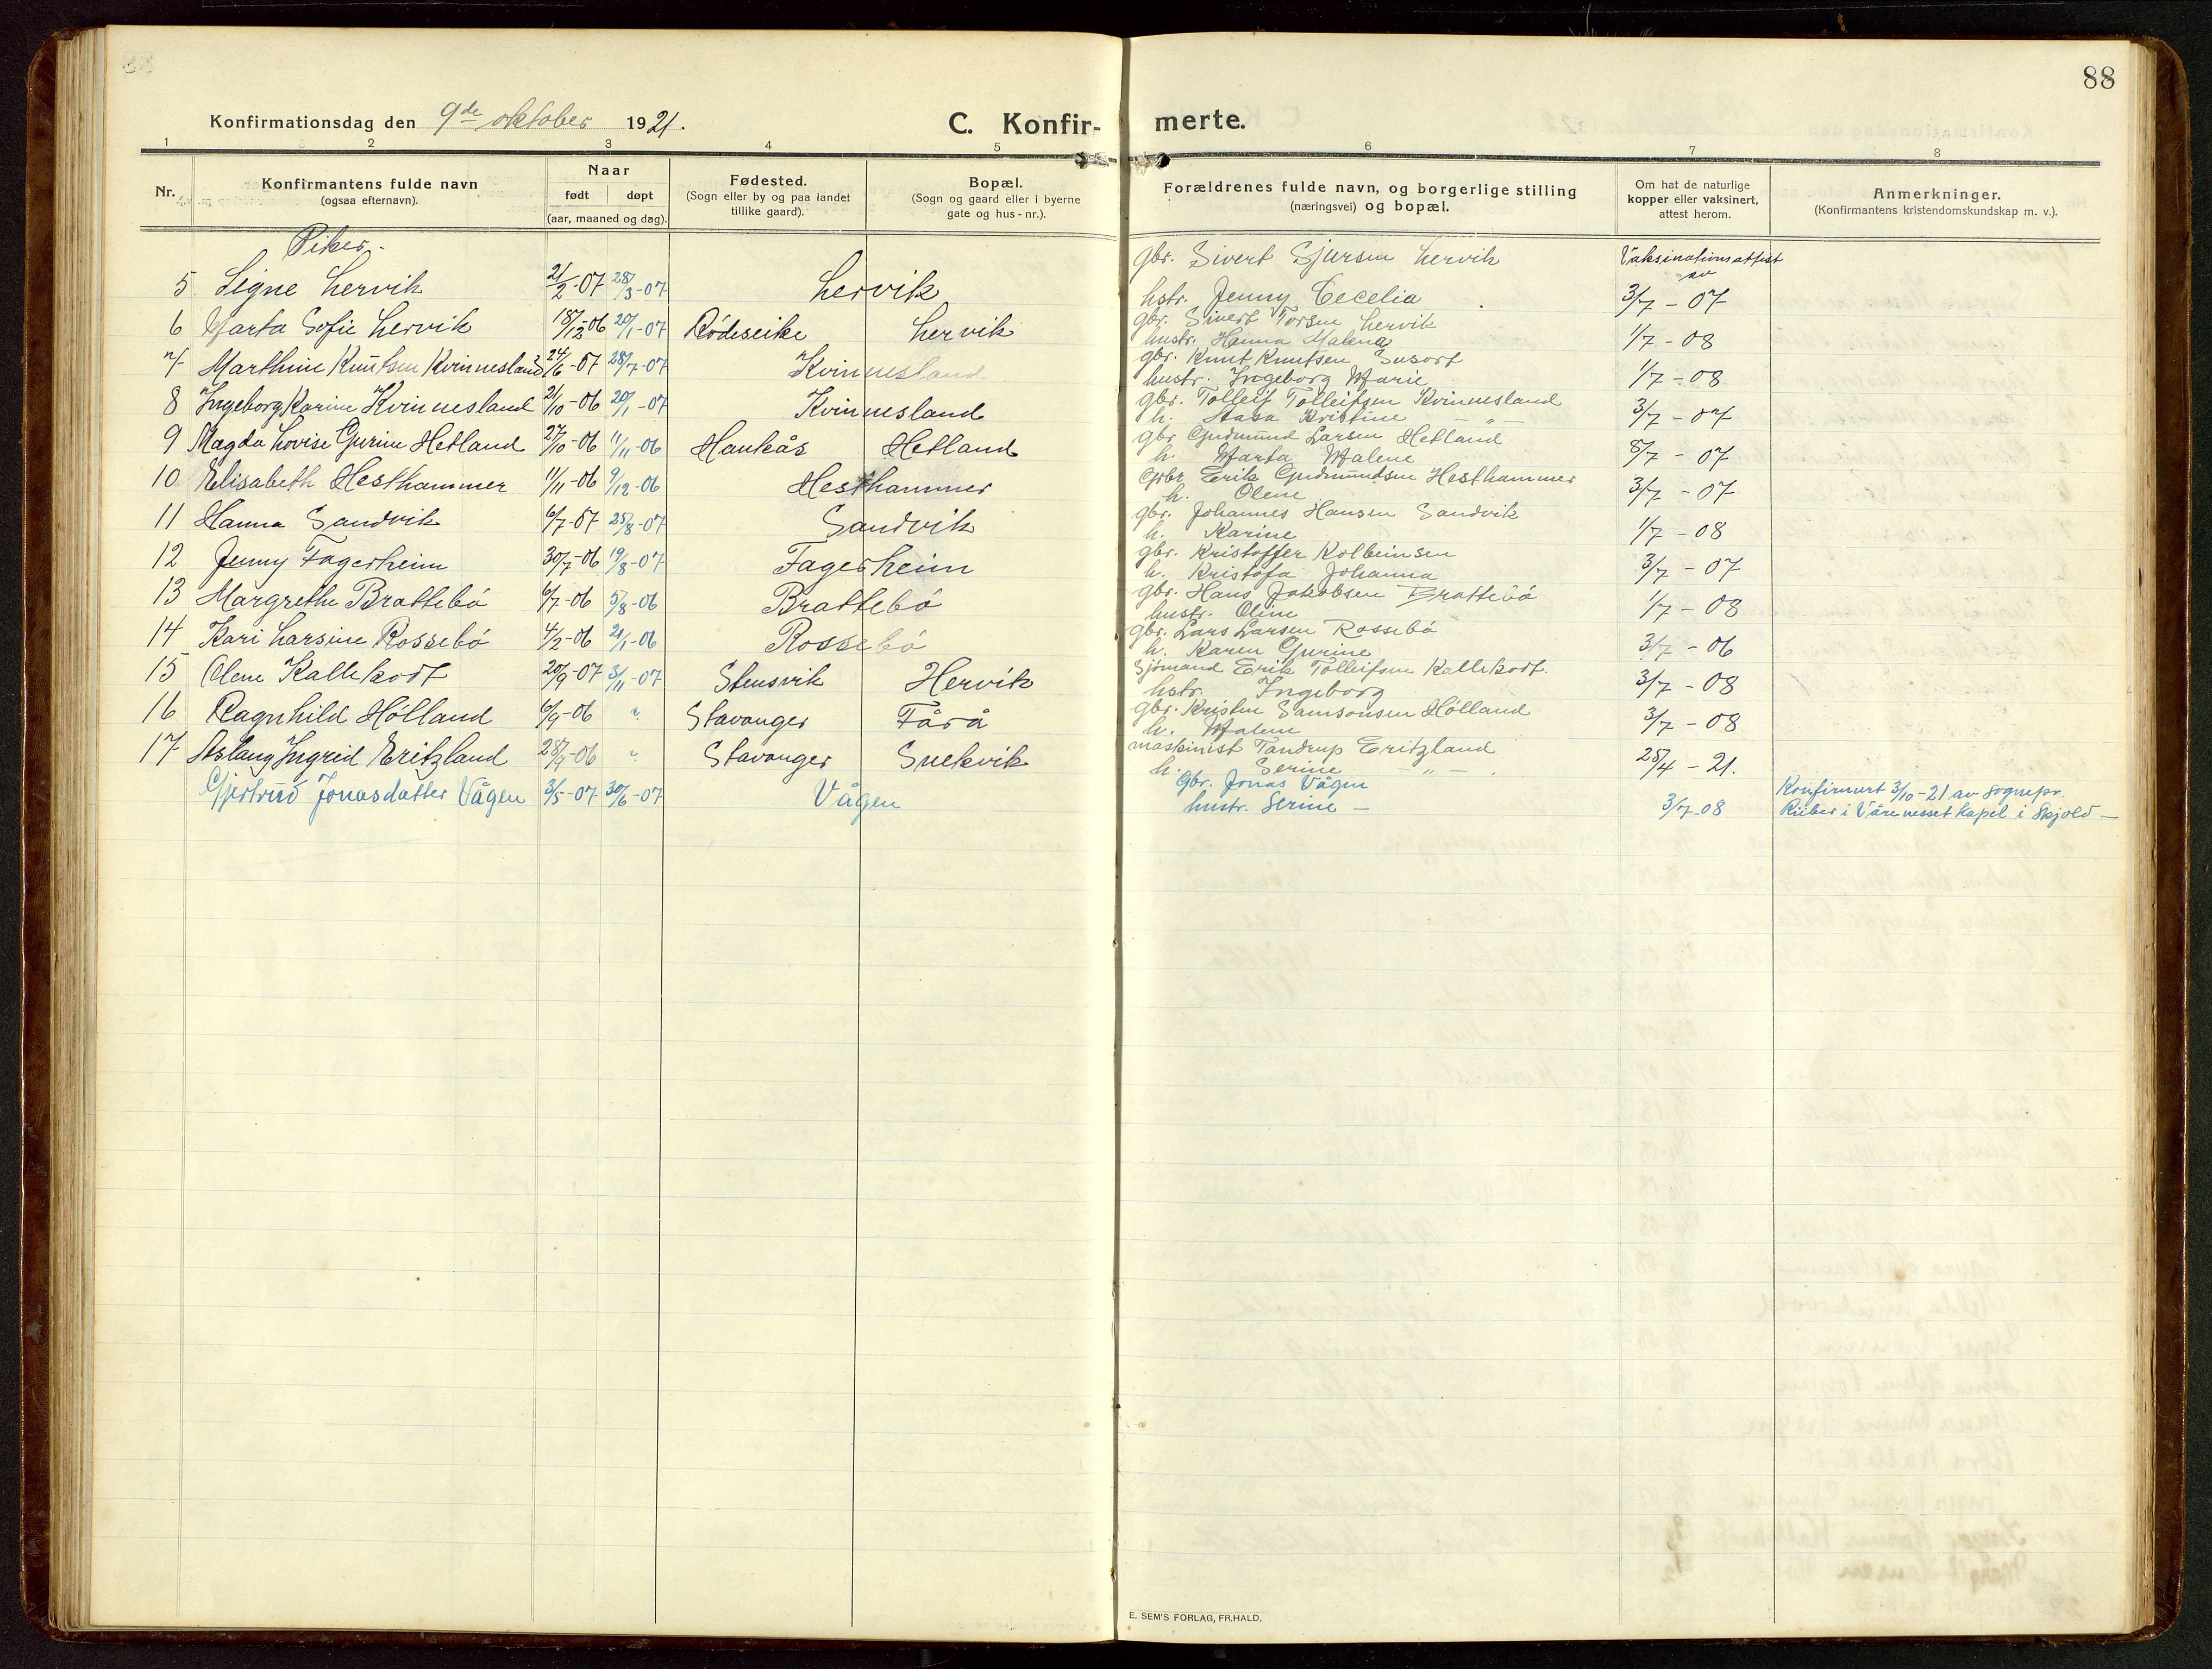 88
Konfirmationsdag den 9de oktober 1921.
C. Konfir- merte.
1 2 3 4 5 6 7 8
Nr.
Konfirmantens fulde navn
(ogsaa efternavn).
Naar
født døpt
(aar, maaned og dag).
Fødested.
(Sogn eller by og paa landet
tillike gaard).
Bopæl.
(Sogn og gaard eller i byerne
gate og hus-nr.).
Forældrenes fulde navn, og borgerlige stilling
(næringsvei) og bopæl.
Om hat de naturlige
kopper eller vaksinert,
attest herom.
Anmerkninger.
(Konfirmantens kristendomskundskap m. v.).
Piker.
Vaksinationsattest
av
5 Signe Hervik 21/2-07 28/3-07 Hervik gbr. Sivert Sjursen Hervik
hstr. Jenny Cecelia 3/7 - 07
6 Marta Sofie Hervik 18/12-06 20/1-07 Rødeseike Hervik gbr. Sivert Torsen Hervik
hustr. Hanna Malena 1/7 - 08
7 Marthine Knutsen Kvinnesland 24/6-07 28/7-07 Kvinnesland gbr. Knut Knutsen Susort
hustr. Ingeborg Marie 1/7 - 08
8 Ingeborg Karine Kvinnesland 21/10-06 20/1-07 Kvinnesland gbr. Tolleif Tolleifsen Kvinnesland
h. Stasa Kristine — " — 3/7 - 07
9 Magda Lovise Gurine Hetland 27/10-06 11/11-06 Haukås Hetland gbr. Gudmund Larsen Hetland
h. Marta Malene 8/7 - 07
10 Elisabeth Hesthammer 11/11-06 9/12-06 Hesthammer Gbr. Erik Gudmundsen Hesthammer
h. Olene 3/7 - 07
11 Hanna Sandvik 6/7-07 25/8-07 Sandvik gbr. Johannes Hansen Sandvik
h. Karine 1/7 - 08
12 Jenny Fagerheim 30/7-06 19/8-07 Fagerheim gbr. Kristoffer Kolbeinsen
h. Kristofa Johanna 3/7 - 07
13 Margrethe Brattebø 6/7-06 5/8-06 Brattebø gbr. Hans Jakobsen Brattebø
hustr. Oline 1/7 - 08
14 Kari Larsine Rossebø 4/2-06 21/1-06 Rossebø gbr. Lars Larsen Rossebø
h. Karen Gurine 3/7 - 06
15 Olene Kallekodt 20/9-07 3/11-07 Stensvik Hervik Sjømand Erik Tolleifsen Kallekodt.
hstr. Ingeborg 3/7 - 08
16 Ragnhild Hølland 6/9-06 " Stavanger Fårå gbr. Kristen Samsonsen Hølland
h. Malene 3/7 - 08
17 Aslaug Ingrid Eritzland 28/9-06 " Stavanger Snekvik maskinist Tandrup Eritzland
h. Serine — " — 28/4 - 21.
Gjertrud Jonasdatter Vågen 3/5-07 30/6-07 Vågen Gbr. Jonas Vågen
hustr. Serine — 3/7-08
Konfirmert 3/10-21 av sognepr.
Rüber i Vårenesset kapel i Skjold —
E. SEM'S FORLAG, FR.HALD.